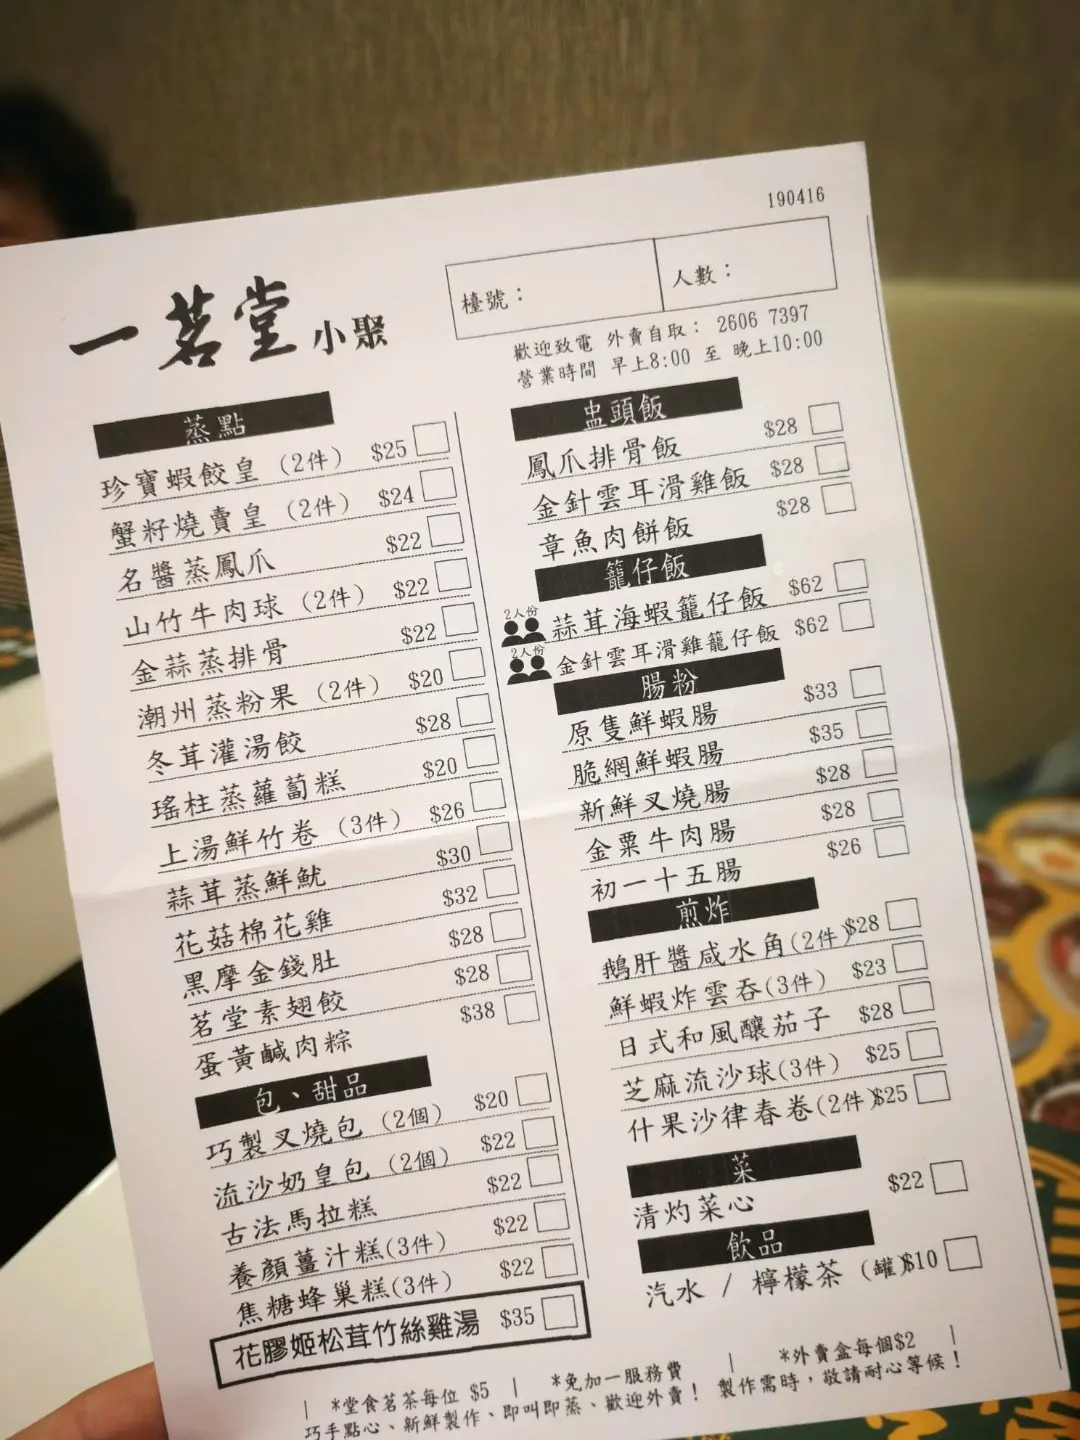 190416
一茗堂小聚
檯號：
人數：
歡迎致電 外賣自取： 2606 7397
營業時間 早上8:00 至 晚上10:00
蒸點
珍寶蝦餃皇 (2件) $25
蟹籽燒賣皇 (2件) $24
名醬蒸鳳爪 $22
山竹牛肉球 (2件) $22
金蒜蒸排骨 $22
潮州蒸粉果 (2件) $20
冬茸灌湯餃 $28
瑤柱蒸蘿蔔糕 $20
上湯鮮竹卷 (3件) $26
蒜茸蒸鮮魷 $30
花菇棉花雞 $32
黑摩金錢肚 $28
茗堂素翅餃 $28
蛋黃鹹肉粽 $38
包、甜品
巧製叉燒包 (2個) $20
流沙奶皇包 (2個) $22
古法馬拉糕 $22
養顏薑汁糕(3件) $22
焦糖蜂巢糕(3件) $22
花膠姬松茸竹絲雞湯 $35
盅頭飯
鳳爪排骨飯 $28
金針雲耳滑雞飯 $28
章魚肉餅飯 $28
籠仔飯
2人份 蒜茸海蝦籠仔飯 $62
2人份 金針雲耳滑雞籠仔飯 $62
腸粉
原隻鮮蝦腸 $33
脆網鮮蝦腸 $35
新鮮叉燒腸 $28
金粟牛肉腸 $28
初一十五腸 $26
煎炸
鵝肝醬咸水角(2件) $28
鮮蝦炸雲吞(3件) $23
日式和風釀茄子 $28
芝麻流沙球(3件) $25
什果沙律春卷(2件) $25
菜
清灼菜心 $22
飲品
汽水 / 檸檬茶 (罐) $10
| *堂食茗茶每位 $5 | *免加一服務費 | *外賣盒每個$2 |
巧手點心、新鮮製作、即叫即蒸、歡迎外賣！ 製作需時，敬請耐心等候！